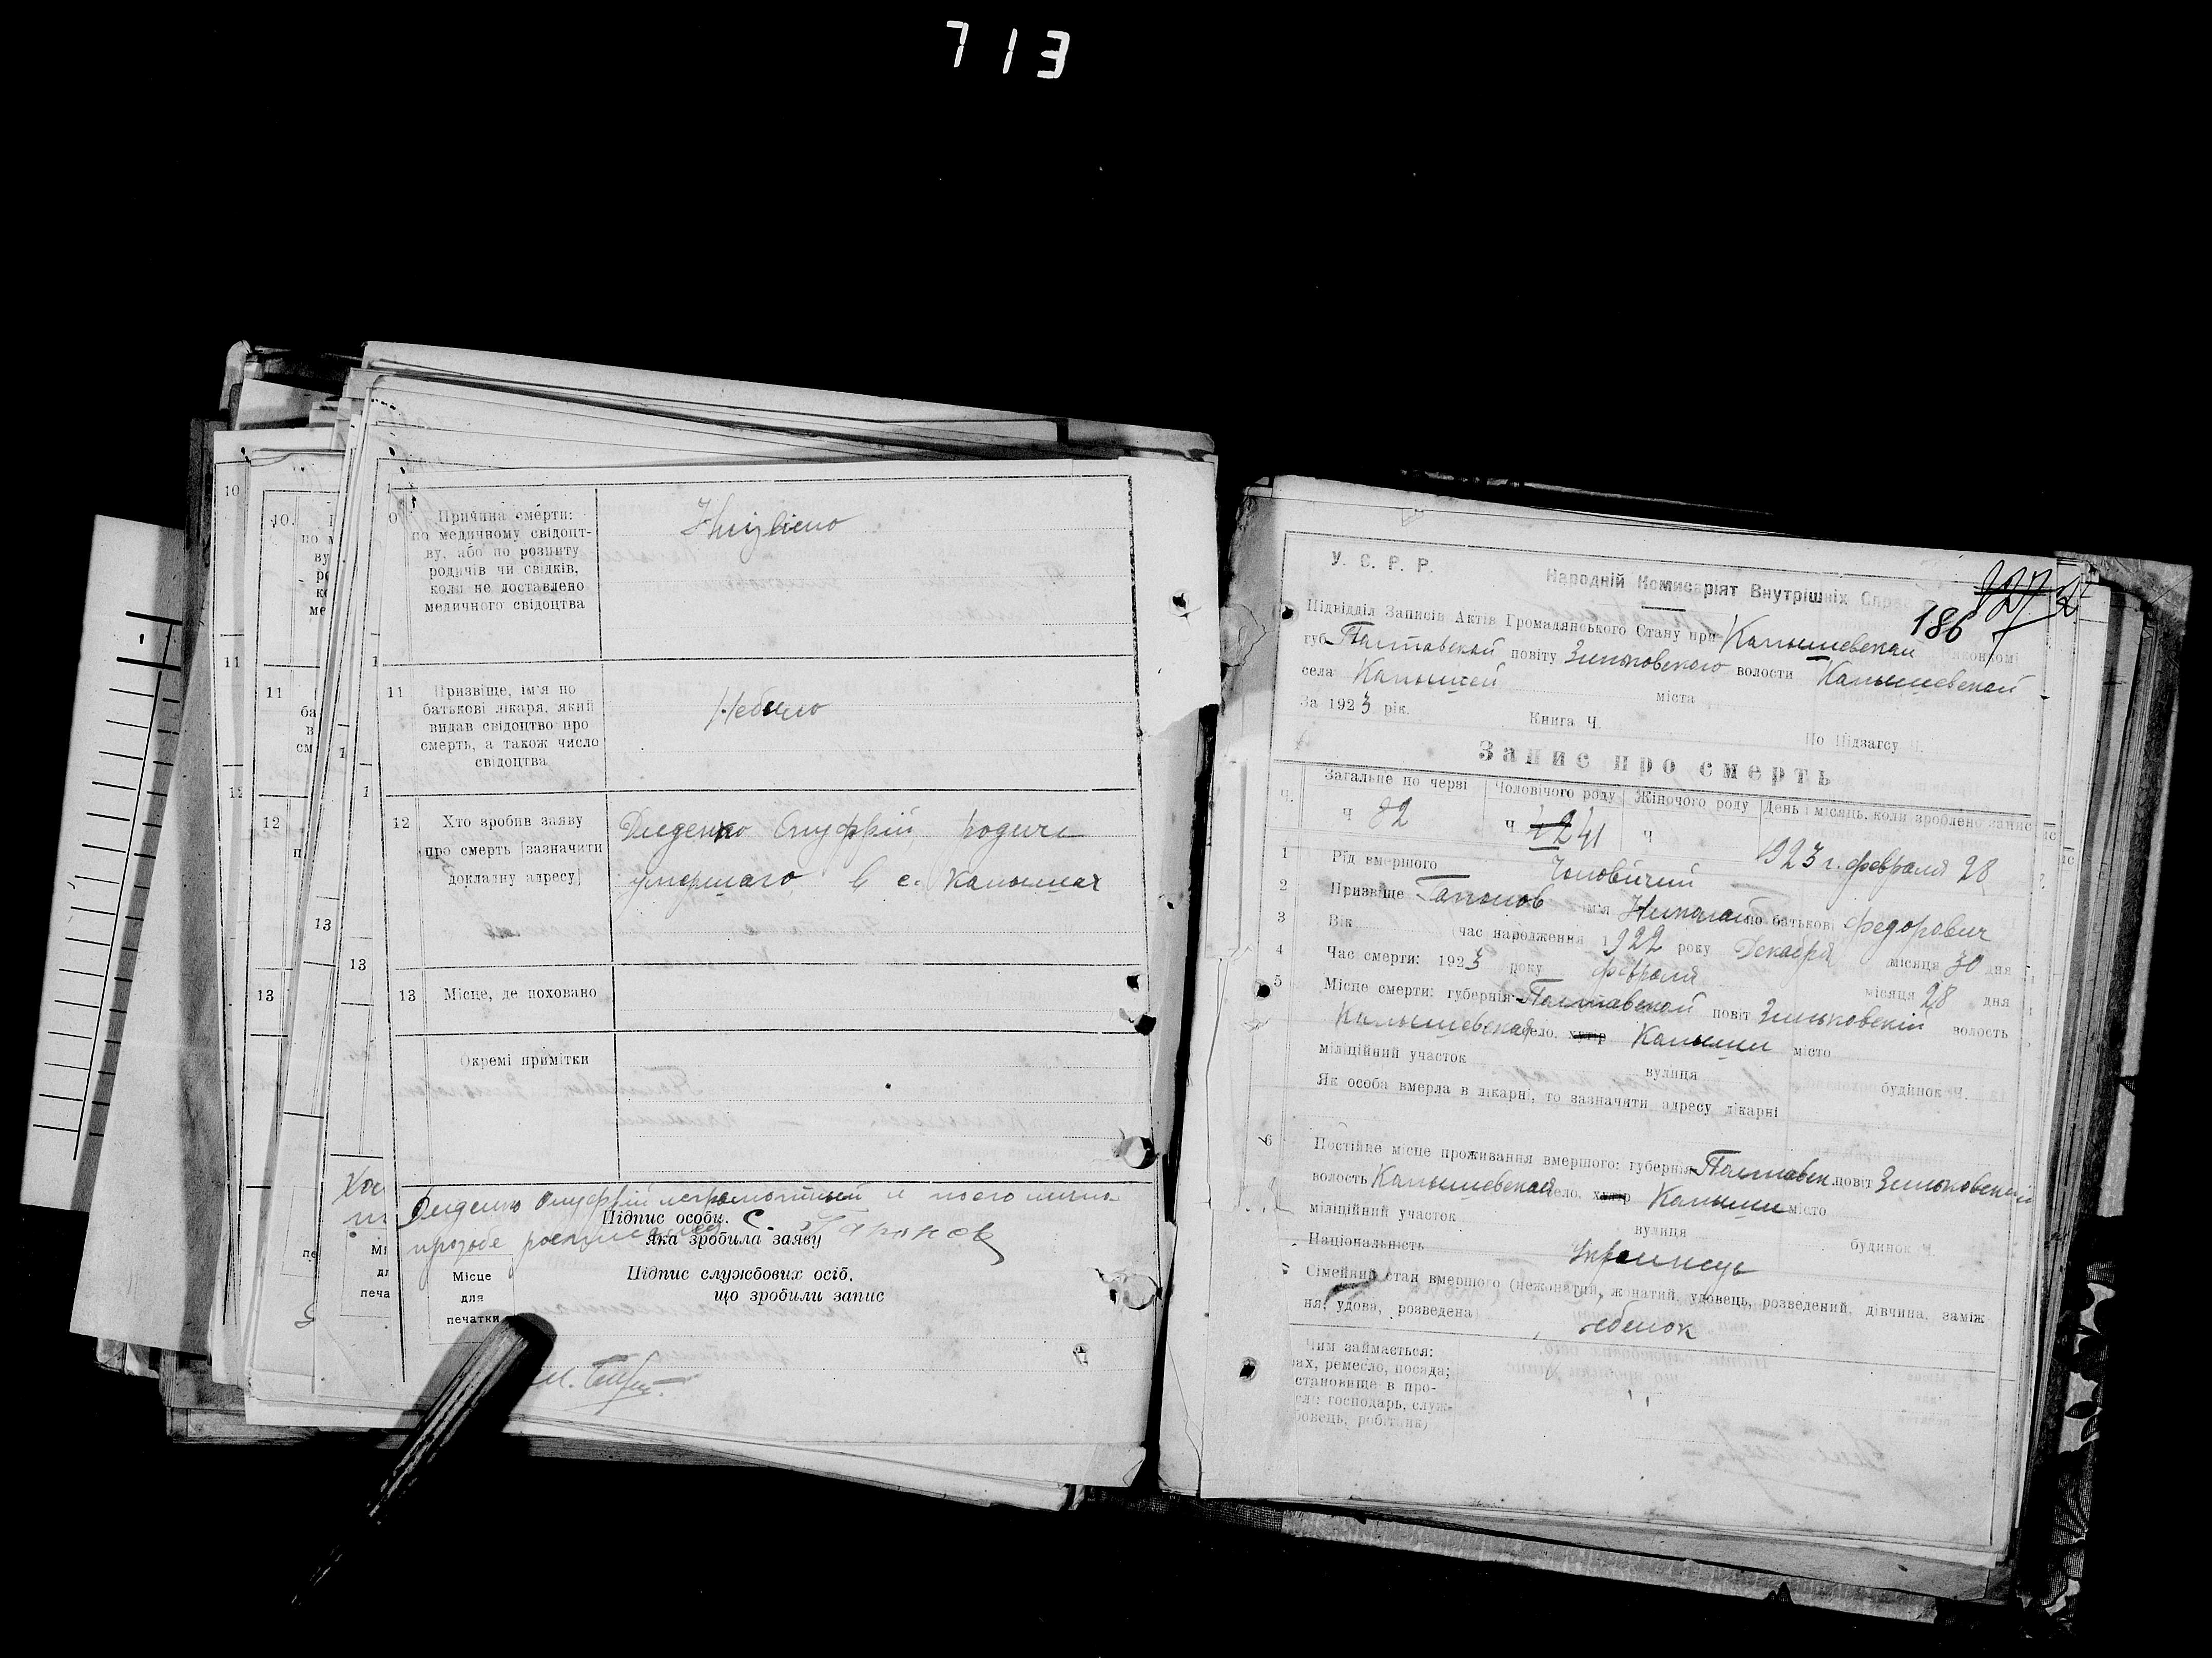 713
10
10.
11
11
12
12
13
13
13
0
Причина смерти:
по медичному свідоцт-
ву, або по розпиту
родичів чи свідків,
коли не доставлено
медичного свідоцтва
11
Призвіще, ім'я по
батькові лікаря, який
видав свідоцтво про
смерть, а також число
свідоцтва
Небуло
12
Хто зробив заяву
про смерть [зазначити
докладну адресу]
Диденко Онуфрій родич
умершаго в с. Капышах
13 Місце, де поховано
Окремі примітки
Диденко Онуфрій неграмотный и по его личной
прозьбе росписался
Підпис особи, С. Гапонов
яка зробила заяву
Підпис службових осіб,
що зробили запис
Місце
для
печатки
У. С. Р. Р.
Народній Комісаріят Внутрішніх Справ
186
Підвідділ Записів Актів Громадянського Стану при Капышевской Виконкомі
губ. Полтавской повіту Зиньковского волости Капышевской
села Капышей міста
За 1923 рік. Книга Ч. По Підзагсу Ч.
Запис про смерть
Ч. Загальне по черзі Чоловічого роду Жіночого роду День і місяць, коли зроблено запис
Ч 82 Ч 41 Ч 1923 г. февраля 28
1 Рід вмершого Чоловичий
2 Призвіще Гапонов ім'я Николай по батькові Федорович
3 Вік (час народження 1922 року Декабря місяця 30 дня
4 Час смерти: 1923 року февраля місяця 28 дня
5 Місце смерти: губернія Полтавской повіт Зиньковскій волость
Капышевская село, хутір Капыши місто
міліційний участок вулиця будинок Ч.
Як особа вмерла в лікарні, то зазначити адресу лікарні
6 Постійне місце проживання вмершого: губернія Полтавск. повіт Зиньковский
волость Капышевская село, хутір Капыши місто
міліційний участок вулиця будинок Ч.
Національність Украинець
Сімейний стан вмершого (нежонатий, жонатий, удовець, розведений, дівчина, заміж
ня, удова, розведена ребенок
Чим займається:
ах, ремесло, посада;
становище в про-
господарь, служ-
бовець, робітник)